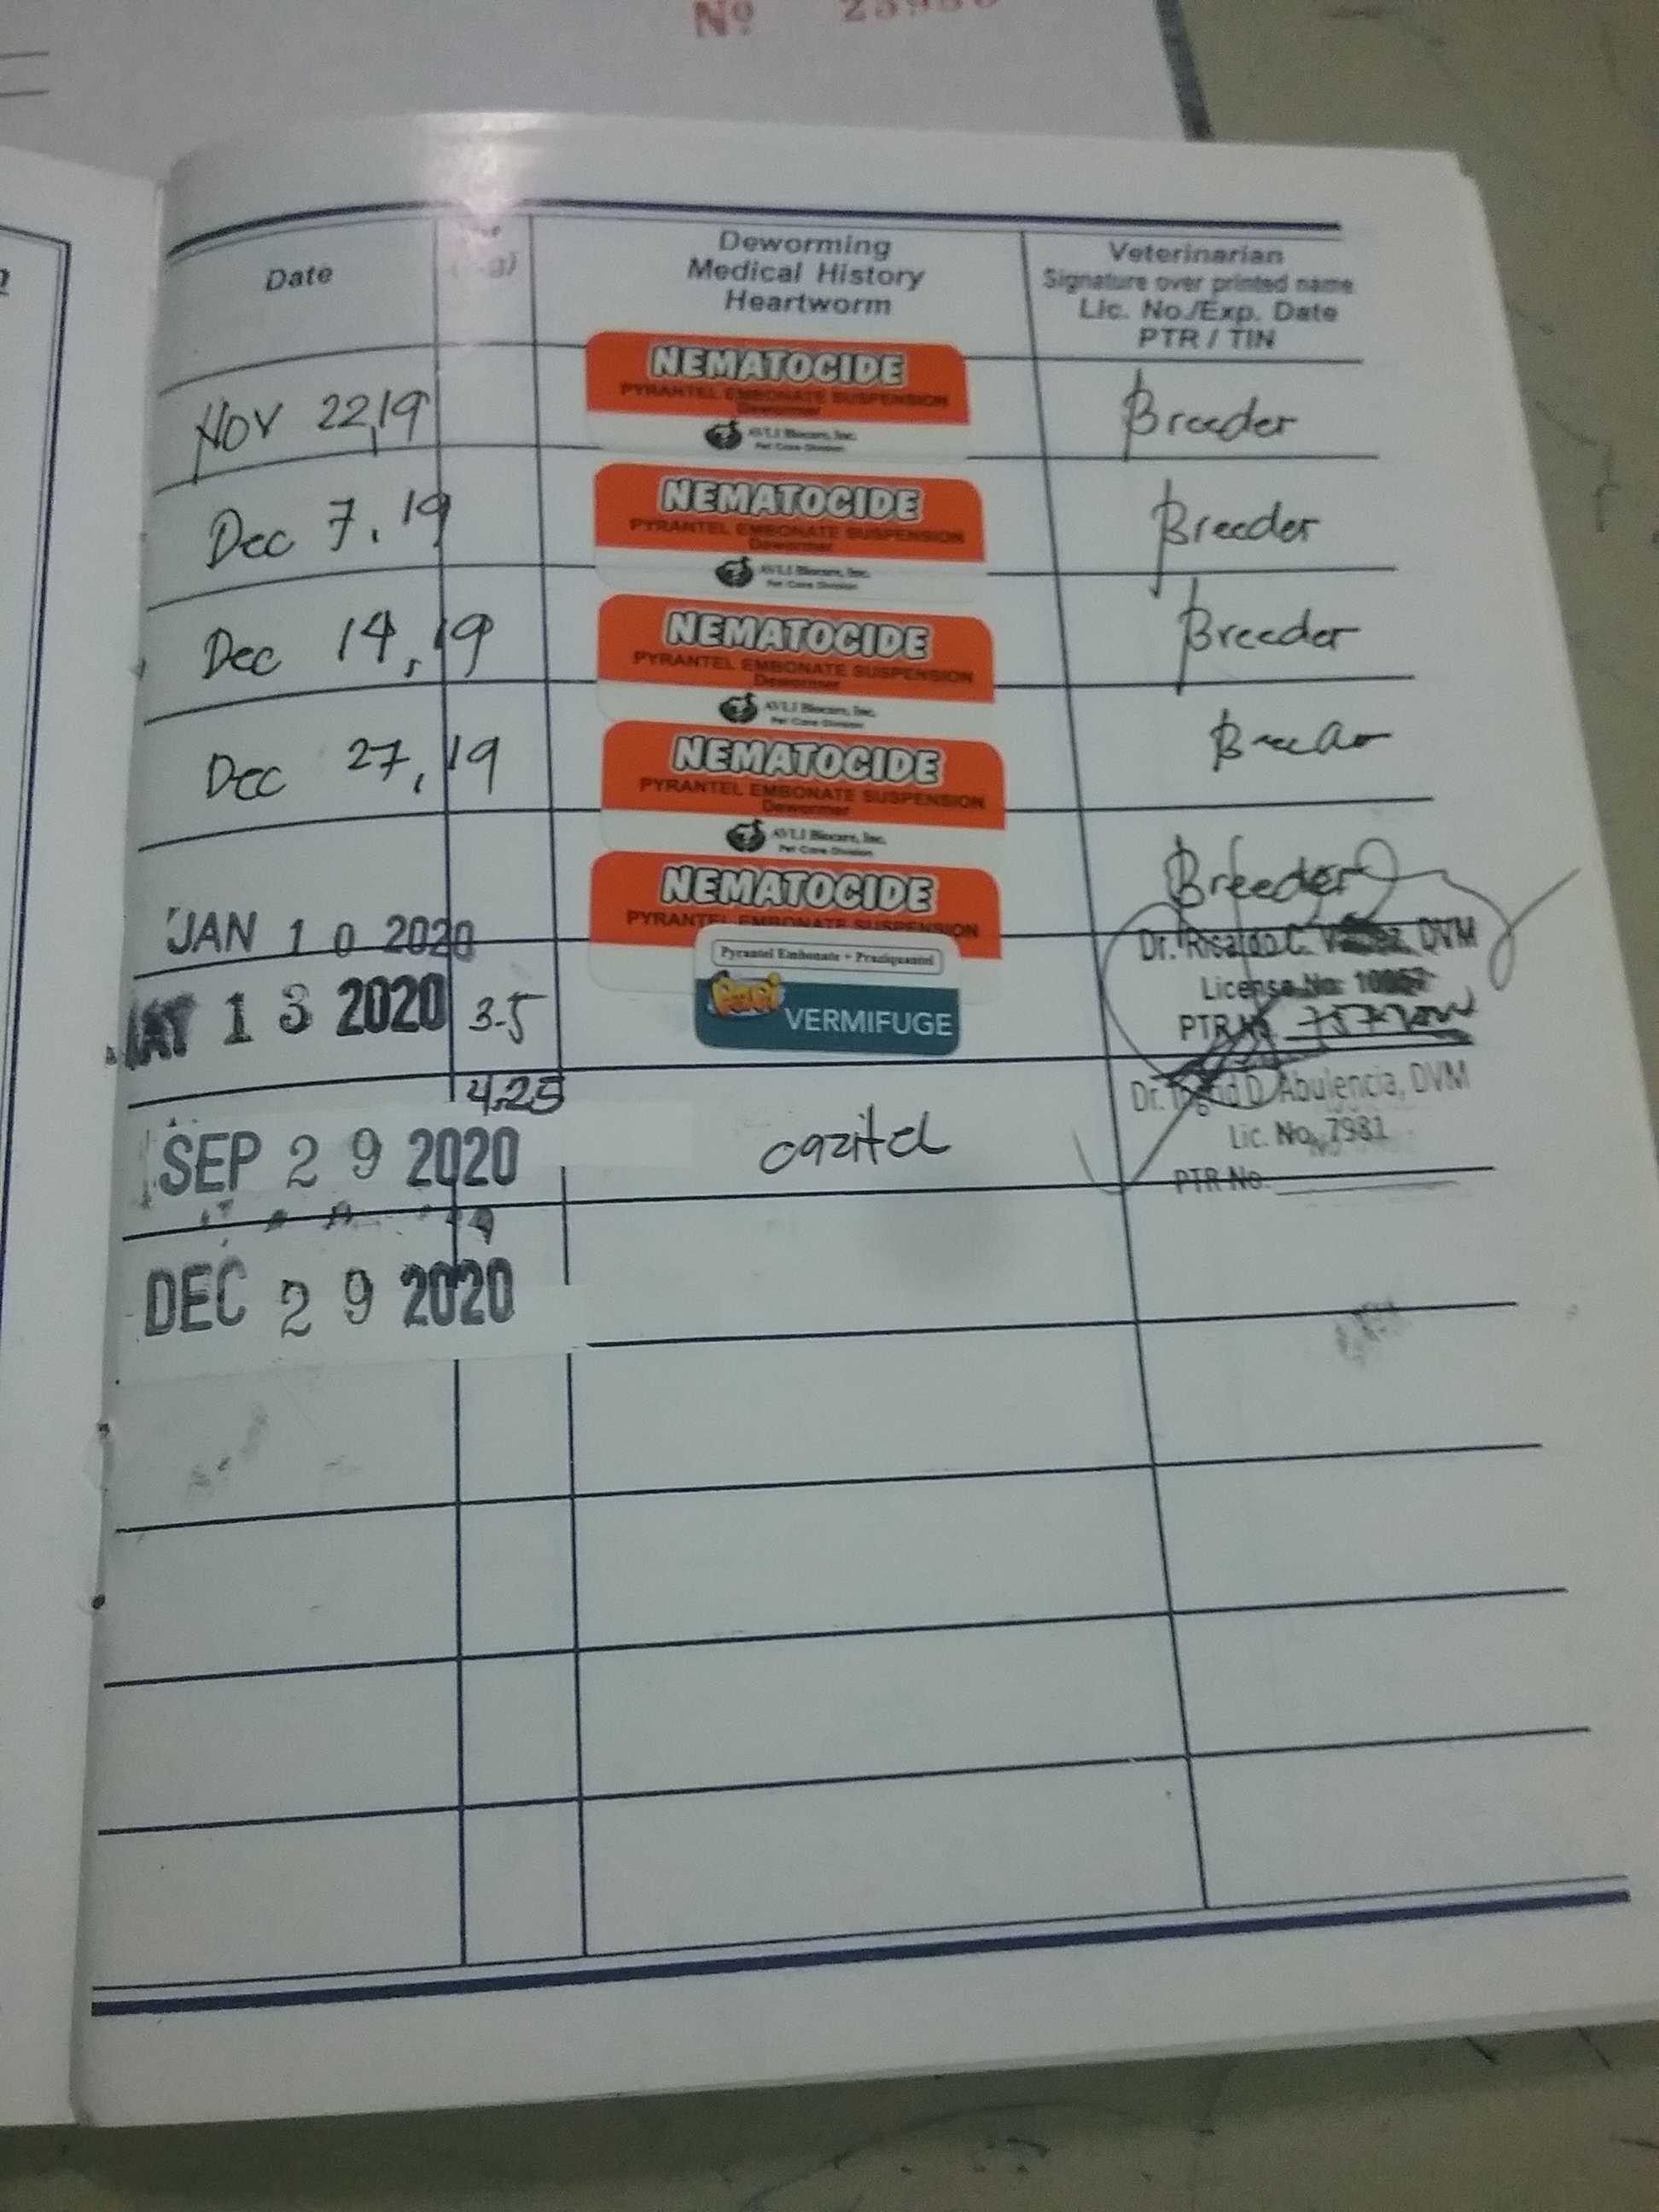 Nº
Date
Deworming
Medical History
Heartworm
Veterinarian
Signature over printed name
Lic. No./Exp. Date
PTR / TIN
NOV 22,19
NEMATOCIDE
PYRANTEL EMBONATE SUSPENSION
Dewormer
AVLI Biocare, Inc.
Pet Care Division
Breeder
Dec 7, 19
NEMATOCIDE
PYRANTEL EMBONATE SUSPENSION
Dewormer
AVLI Biocare, Inc.
Pet Care Division
Breeder
Dec 14, 19
NEMATOCIDE
PYRANTEL EMBONATE SUSPENSION
Dewormer
AVLI Biocare, Inc.
Pet Care Division
Breeder
Dec 27, 19
NEMATOCIDE
PYRANTEL EMBONATE SUSPENSION
Dewormer
AVLI Biocare, Inc.
Pet Care Division
Breeder
JAN 10 2020
NEMATOCIDE
PYRANTEL EMBONATE SUSPENSION
Breeder
13 2020
3.5
Pyrantel Embonate + Praziquantel
VERMIFUGE
Dr. Ricardo C. DVM
License No.
PTR No.
SEP 29 2020
4.25
cazitel
Dr. Ingrid D. Abulencia, DVM
Lic. No. 7981
PTR No.
DEC 29 2020